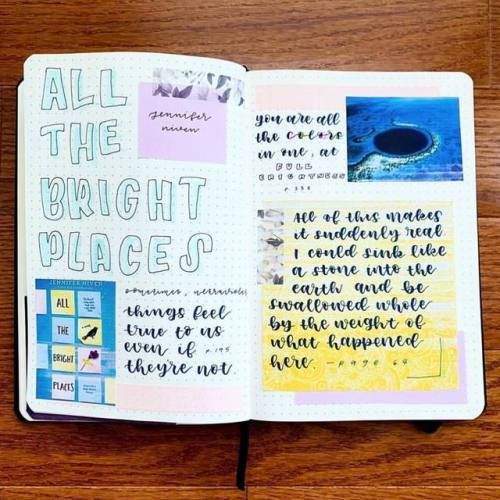 ALL
THE
BRIGHT
PLACES
jennifer
niven
JENNIFER NIVEN
ALL
THE
BRIGHT
PLACES
sometimes, ultraviolet
things feel
true to us
even if p.195
they're not.
you are all
the colors
in one, at
FULL
BRIGHTNESS
All of this makes
it suddenly real.
I could sink like
a stone into the
earth and be
swallowed whole
by the weight of
what happened
here. -page 64